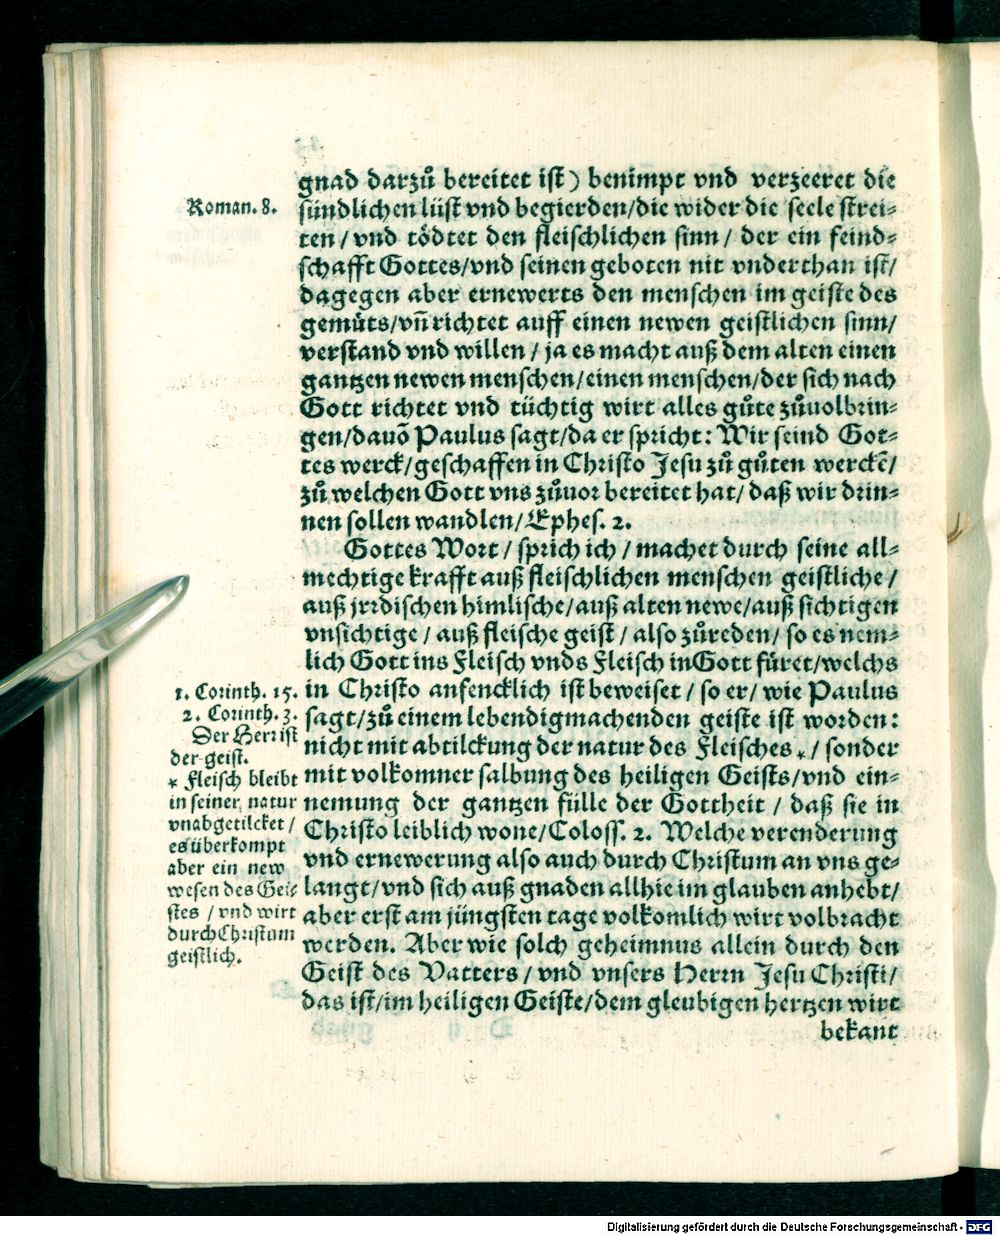 gnad darzuͦ bereitet ist) benimpt vnd verzeeret die
Roman. 8.
sündlichen lüst vnd begierden/die wider die seele strei-
ten/vnd tödtet den fleischlichen sinn/ der ein feind-
schafft Gottes/vnd seinen geboten nit vnderthan ist/
dagegen aber ernewerts den menschen im geiste des
gemuͤts/vn̄ richtet auff einen newen geistlichen sinn/
verstand vnd willen/ ja es macht auß dem alten einen
gantzen newen menschen/einen menschen/der sich nach
Gott richtet vnd tüchtig wirt alles guͦte zuͦuolbrin-
gen/dauō Paulus sagt/da er spricht: Wir seind Got-
tes werck/geschaffen in Christo Jesu zuͦ guͦten werckē/
zuͦ welchen Gott vns zuͦuor bereitet hat/ daß wir drin-
nen sollen wandlen/Ephes. 2.
Gottes Wort/ sprich ich/ machet durch seine all-
mechtige krafft auß fleischlichen menschen geistliche/
auß jrrdischen himlische/auß alten newe/auß sichtigen
vnsichtige/ auß fleische geist/ also zuͦreden/ so es nem-
lich Gott ins Fleisch vnds Fleisch in Gott füret/welchs
in Christo anfencklich ist beweiset/ so er/ wie Paulus
sagt/zuͦ einem lebendigmachenden geiste ist worden:
nicht mit abtilckung der natur des Fleisches*/ sonder
mit volkomner salbung des heiligen Geists/vnd ein-
nemung der gantzen fülle der Gottheit/ daß sie in
Christo leiblich wone/Coloss. 2. Welche verenderung
vnd ernewerung also auch durch Christum an vns ge-
langt/vnd sich auß gnaden allhie im glauben anhebt/
aber erst am jüngsten tage volkomlich wirt volbracht
werden. Aber wie solch geheimnus allein durch den
Geist des Vatters/ vnd vnsers Herrn Jesu Christi/
das ist/im heiligen Geiste/dem gleubigen hertzen wirt
bekant
1. Corinth. 15.
2. Corinth. 3.
Der Herr ist
der geist.
* Fleisch bleibt
in seiner natur
vnabgetilcket/
es überkompt
aber ein new
wesen des Gei-
stes/vnd wirt
durch Christum
geistlich.
Digitalisierung gefördert durch die Deutsche Forschungsgemeinschaft - DFG